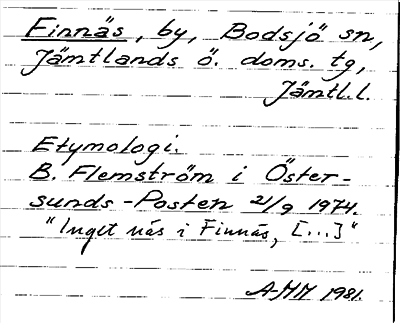 Finnäs, by, Bodsjö sn,
Jämtlands ö. doms. tg,
Jämtl.l.
Etymologi.
B. Flemström i Öster-
sunds-Posten 21/9 1974.
"Inget näs i Finnäs, [...]"
A-MM 1981.